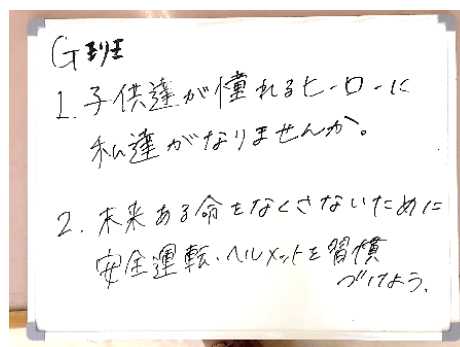 G班
1. 子供達が憧れるヒーローに
私達がなりませんか。
2. 未来ある命をなくさないために
安全運転・ヘルメットを習慣
づけよう.